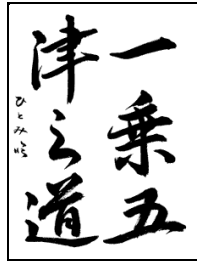 一乗五
津之道
ひとみ